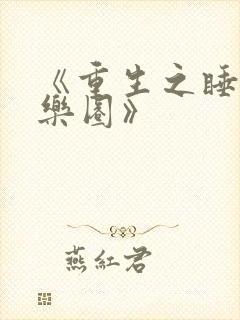 《重生之睡
樂園》
燕紅君